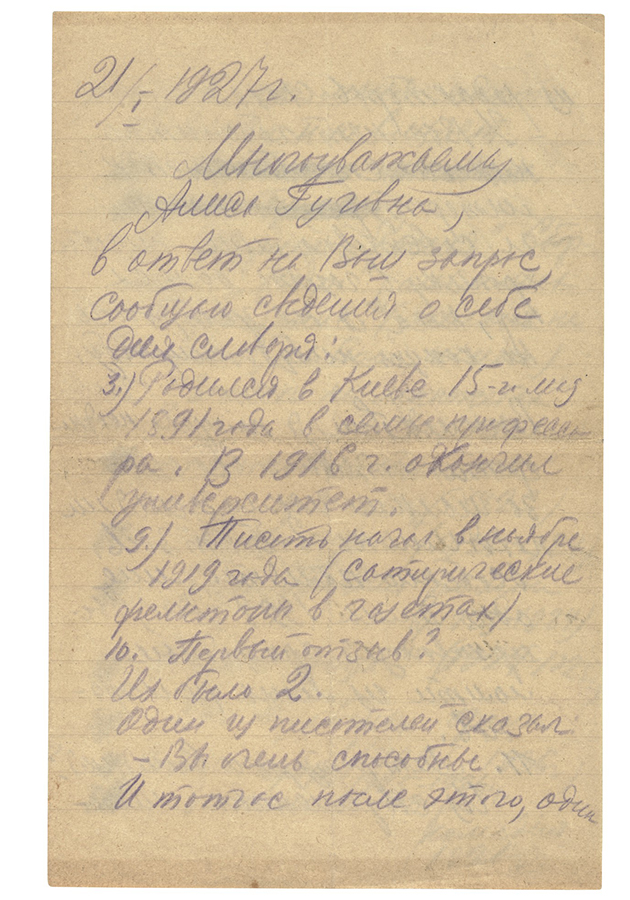 21/I 1927 г.
Многоуважаемая
Алиса Гуговна,
в ответ на Ваш запрос,
сообщаю сведения о себе
для словаря:
3.) Родился в Киеве 15-го мая
1891 года в семье профессо-
ра. В 1916 г. окончил
университет.
9.) Писать начал в ноябре
1919 года (сатирические
фельетоны в газетах)
10. Первый отзыв?
Их было 2.
Один из писателей сказал
– Вы очень способны
И тотчас после этого, один